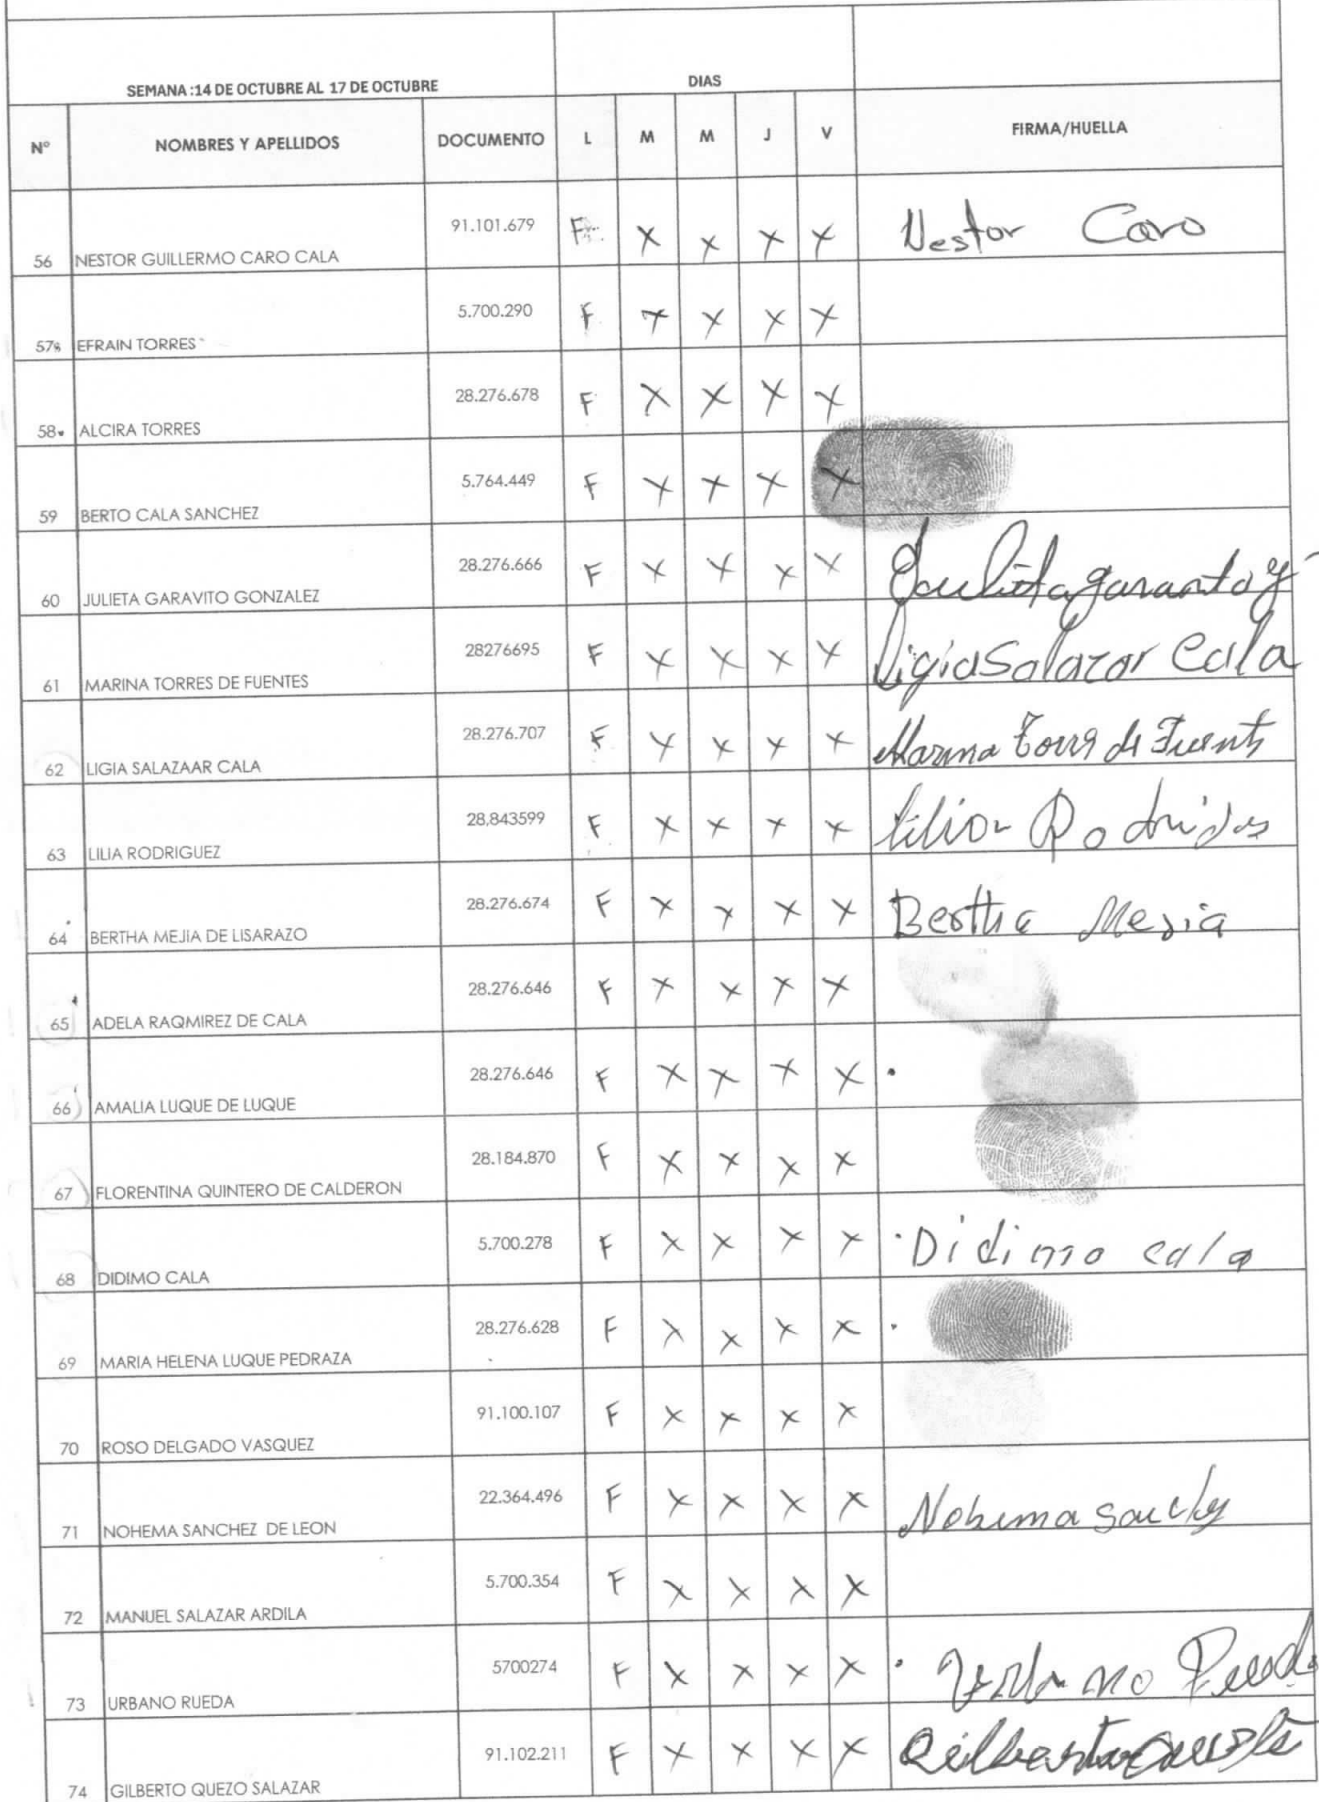 SEMANA :14 DE OCTUBRE AL 17 DE OCTUBRE DIAS
N° NOMBRES Y APELLIDOS DOCUMENTO L M M J V FIRMA/HUELLA
56 NESTOR GUILLERMO CARO CALA 91.101.679 F X X X X Nestor Caro
57 EFRAIN TORRES 5.700.290 F X X X X
58 ALCIRA TORRES 28.276.678 F X X X X
59 BERTO CALA SANCHEZ 5.764.449 F X X X X
60 JULIETA GARAVITO GONZALEZ 28.276.666 F X X X X
61 MARINA TORRES DE FUENTES 28276695 F X X X X Ligia Salazar Cala
62 LIGIA SALAZAAR CALA 28.276.707 F X X X X Marina Torres de Fuents
63 LILIA RODRIGUEZ 28.843599 F X X X X
64 BERTHA MEJIA DE LISARAZO 28.276.674 F X X X X Bertha Mesia
65 ADELA RAQMIREZ DE CALA 28.276.646 F X X X X
66 AMALIA LUQUE DE LUQUE 28.276.646 F X X X X
67 FLORENTINA QUINTERO DE CALDERON 28.184.870 F X X X X
68 DIDIMO CALA 5.700.278 F X X X X Didimo cala
69 MARIA HELENA LUQUE PEDRAZA 28.276.628 F X X X X
70 ROSO DELGADO VASQUEZ 91.100.107 F X X X X
71 NOHEMA SANCHEZ DE LEON 22.364.496 F X X X X
72 MANUEL SALAZAR ARDILA 5.700.354 F X X X X
73 URBANO RUEDA 5700274 F X X X X
74 GILBERTO QUEZO SALAZAR 91.102.211 F X X X X